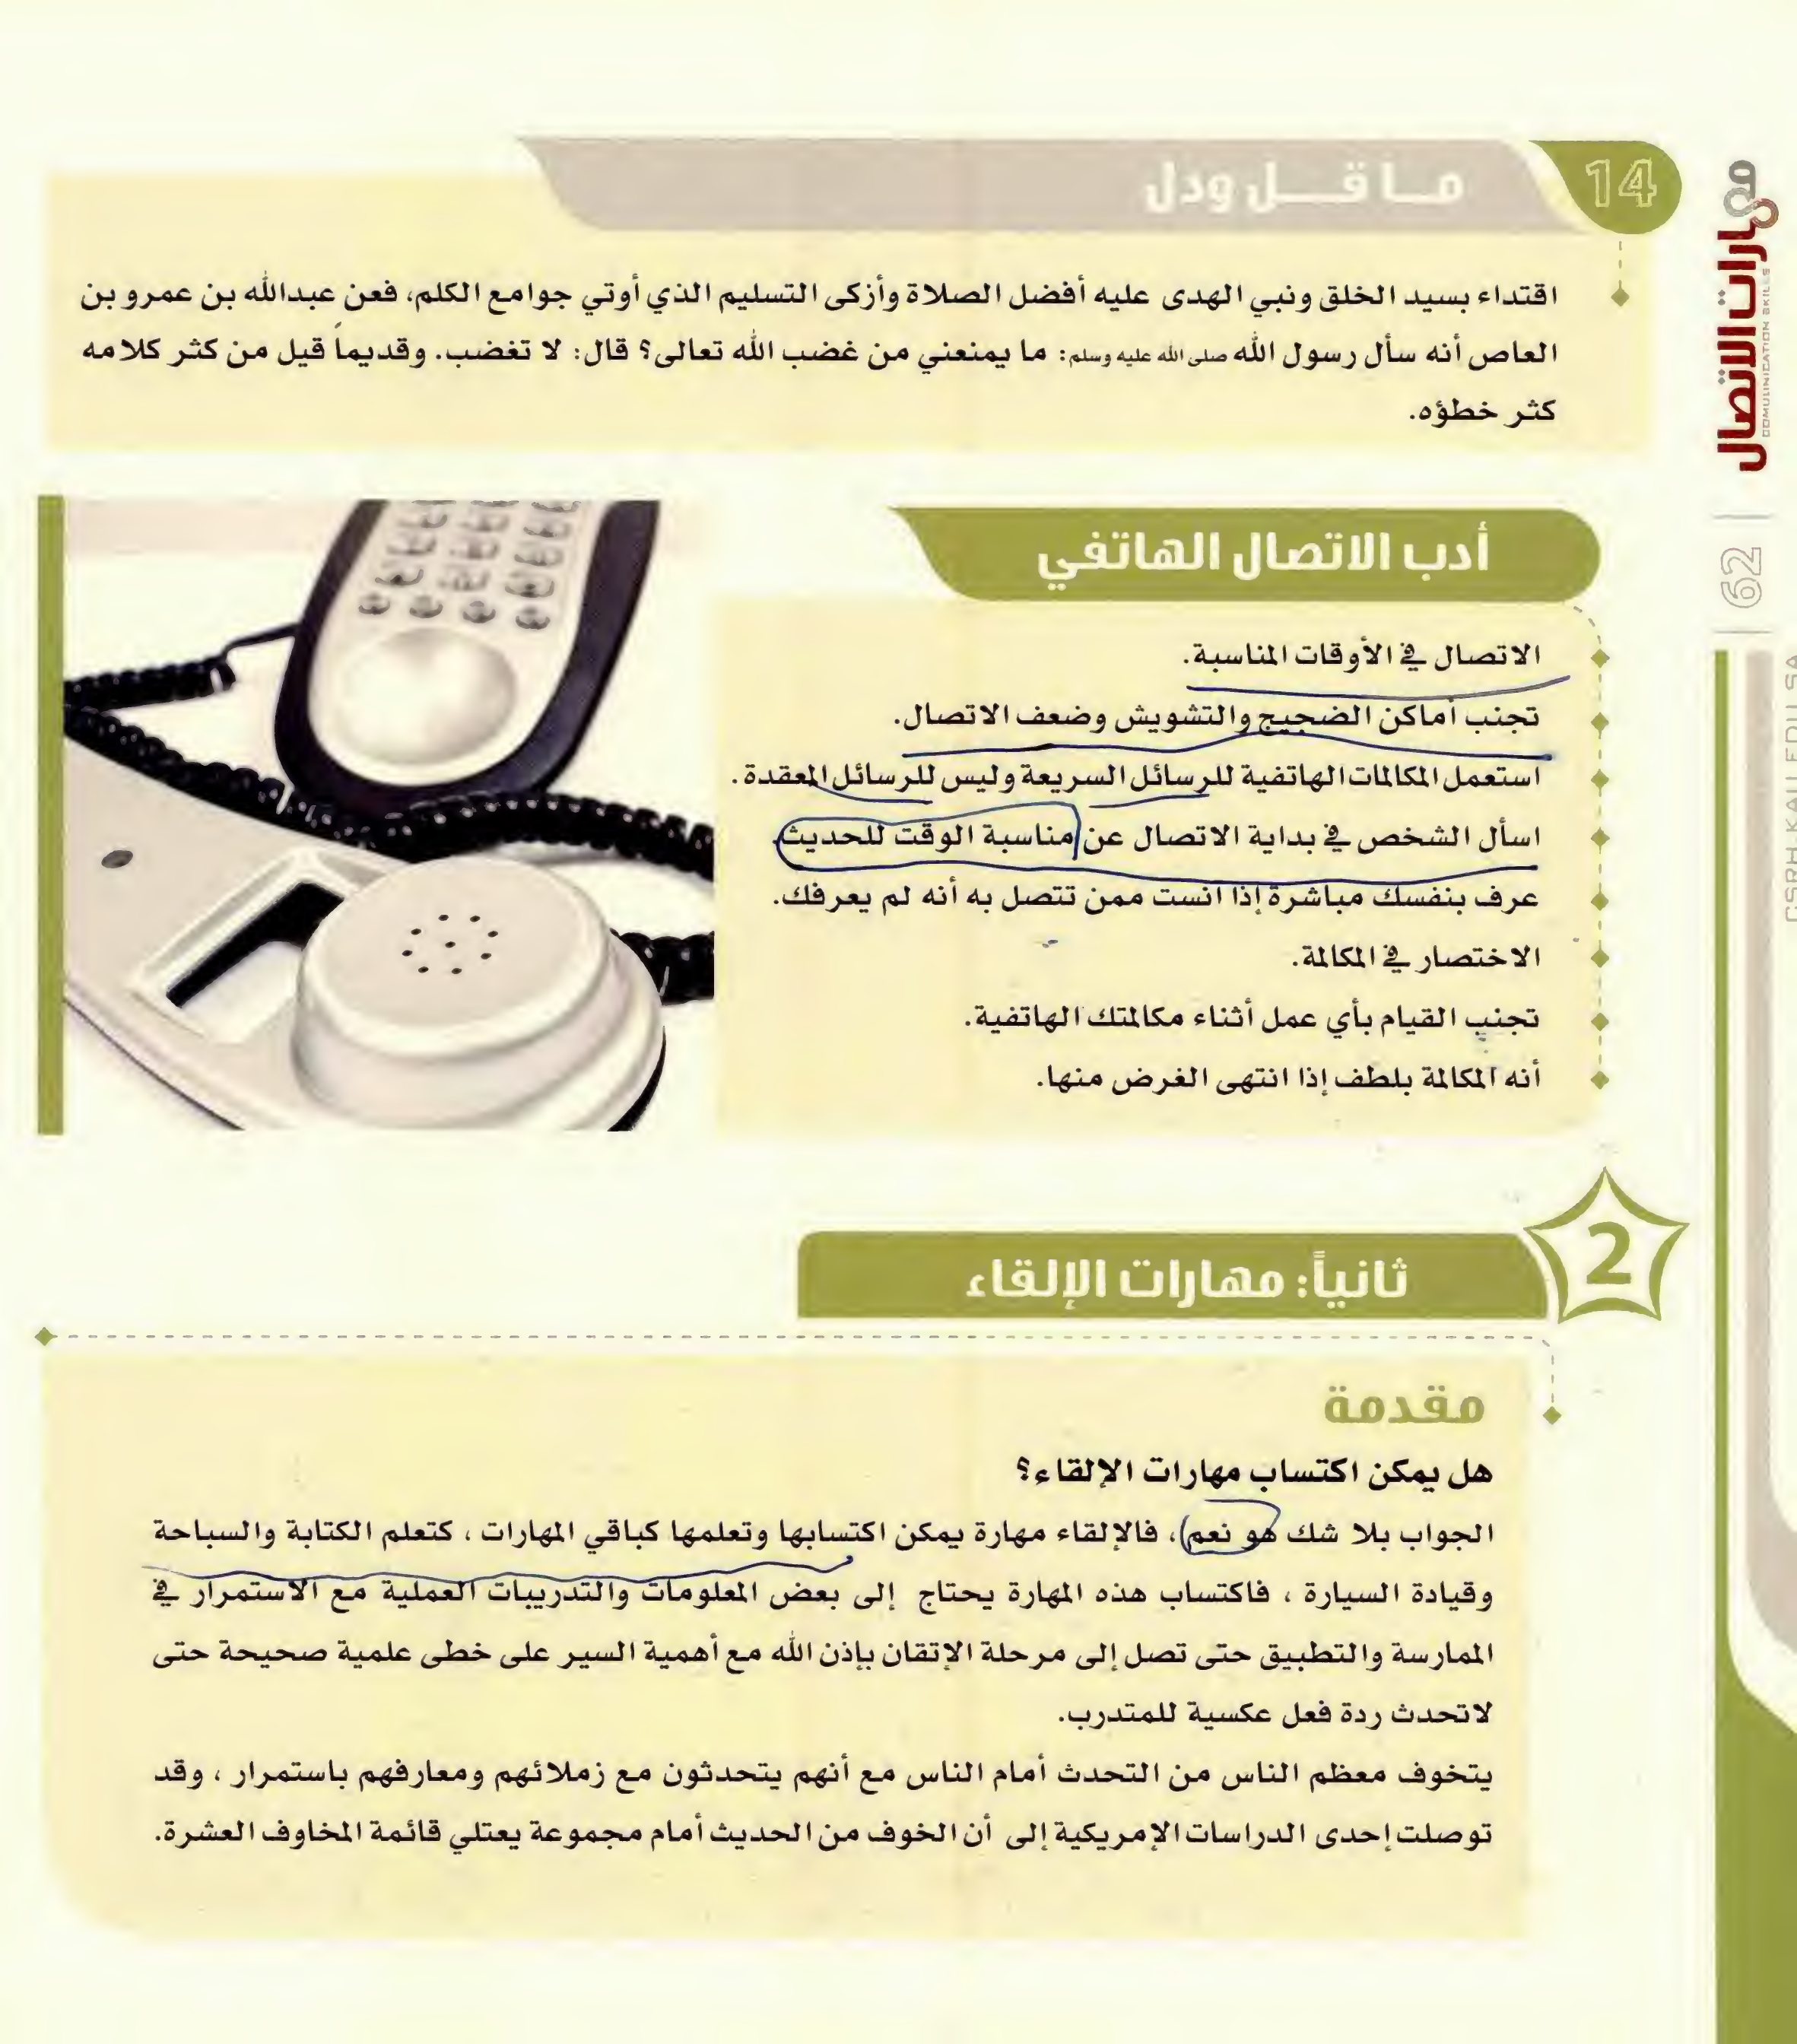 14
مـا قـــل ودل
اقتداء بسيد الخلق ونبي الهدى عليه أفضل الصلاة وأزكى التسليم الذي أوتي جوامع الكلم، فعن عبدالله بن عمرو بن
العاص أنه سأل رسول الله صلى الله عليه وسلم: ما يمنعني من غضب الله تعالى؟ قال: لا تغضب. وقديماً قيل من كثر كلامه
كثر خطؤه.
أدب الاتصال الهاتفي
الاتصال في الأوقات المناسبة.
تجنب أماكن الضجيج والتشويش وضعف الاتصال.
استعمل المكالمات الهاتفية للرسائل السريعة وليس للرسائل المعقدة.
اسأل الشخص في بداية الاتصال عن مناسبة الوقت للحديث.
عرف بنفسك مباشرة إذا انست ممن تتصل به أنه لم يعرفك.
الاختصار في المكالمة.
تجنب القيام بأي عمل أثناء مكالمتك الهاتفية.
أنه المكالمة بلطف إذا انتهى الغرض منها.
2
ثانياً: مهارات الإلقاء
مقدمة
هل يمكن اكتساب مهارات الإلقاء؟
الجواب بلا شك هو نعم، فالإلقاء مهارة يمكن اكتسابها وتعلمها كباقي المهارات ، كتعلم الكتابة والسباحة
وقيادة السيارة ، فاكتساب هذه المهارة يحتاج إلى بعض المعلومات والتدريبات العملية مع الاستمرار في
الممارسة والتطبيق حتى تصل إلى مرحلة الإتقان بإذن الله مع أهمية السير على خطى علمية صحيحة حتى
لاتحدث ردة فعل عكسية للمتدرب.
يتخوف معظم الناس من التحدث أمام الناس مع أنهم يتحدثون مع زملائهم ومعارفهم باستمرار ، وقد
توصلت إحدى الدراسات الإمريكية إلى أن الخوف من الحديث أمام مجموعة يعتلي قائمة المخاوف العشرة.
مهارات الاتصال
COMUUNICATION SKILLS
62